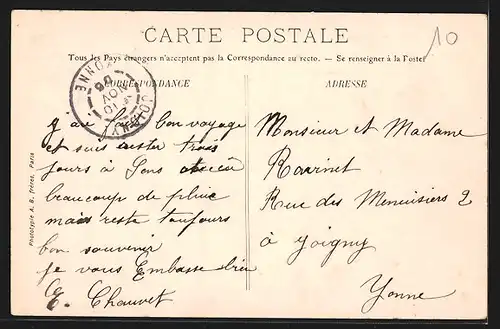 CARTE POSTALE
Tous les Pays étrangers n'acceptent pas la Correspondance au recto. — Se renseigner à la Poste
10
CORRESPONDANCE
ADRESSE
JOIGNY
YONNE
10
NOV
06
j'ai fait bon voyage
et suis rester trois
jours à Sens
beaucoup de pluie
mais reste toujours
bon souvenir
je vous Embrasse bien
E. Chauvet
Monsieur et Madame
Ravinet
Rue des Menuisiers 2
à Joigny
Yonne
Phototypie A. B. frères, Paris